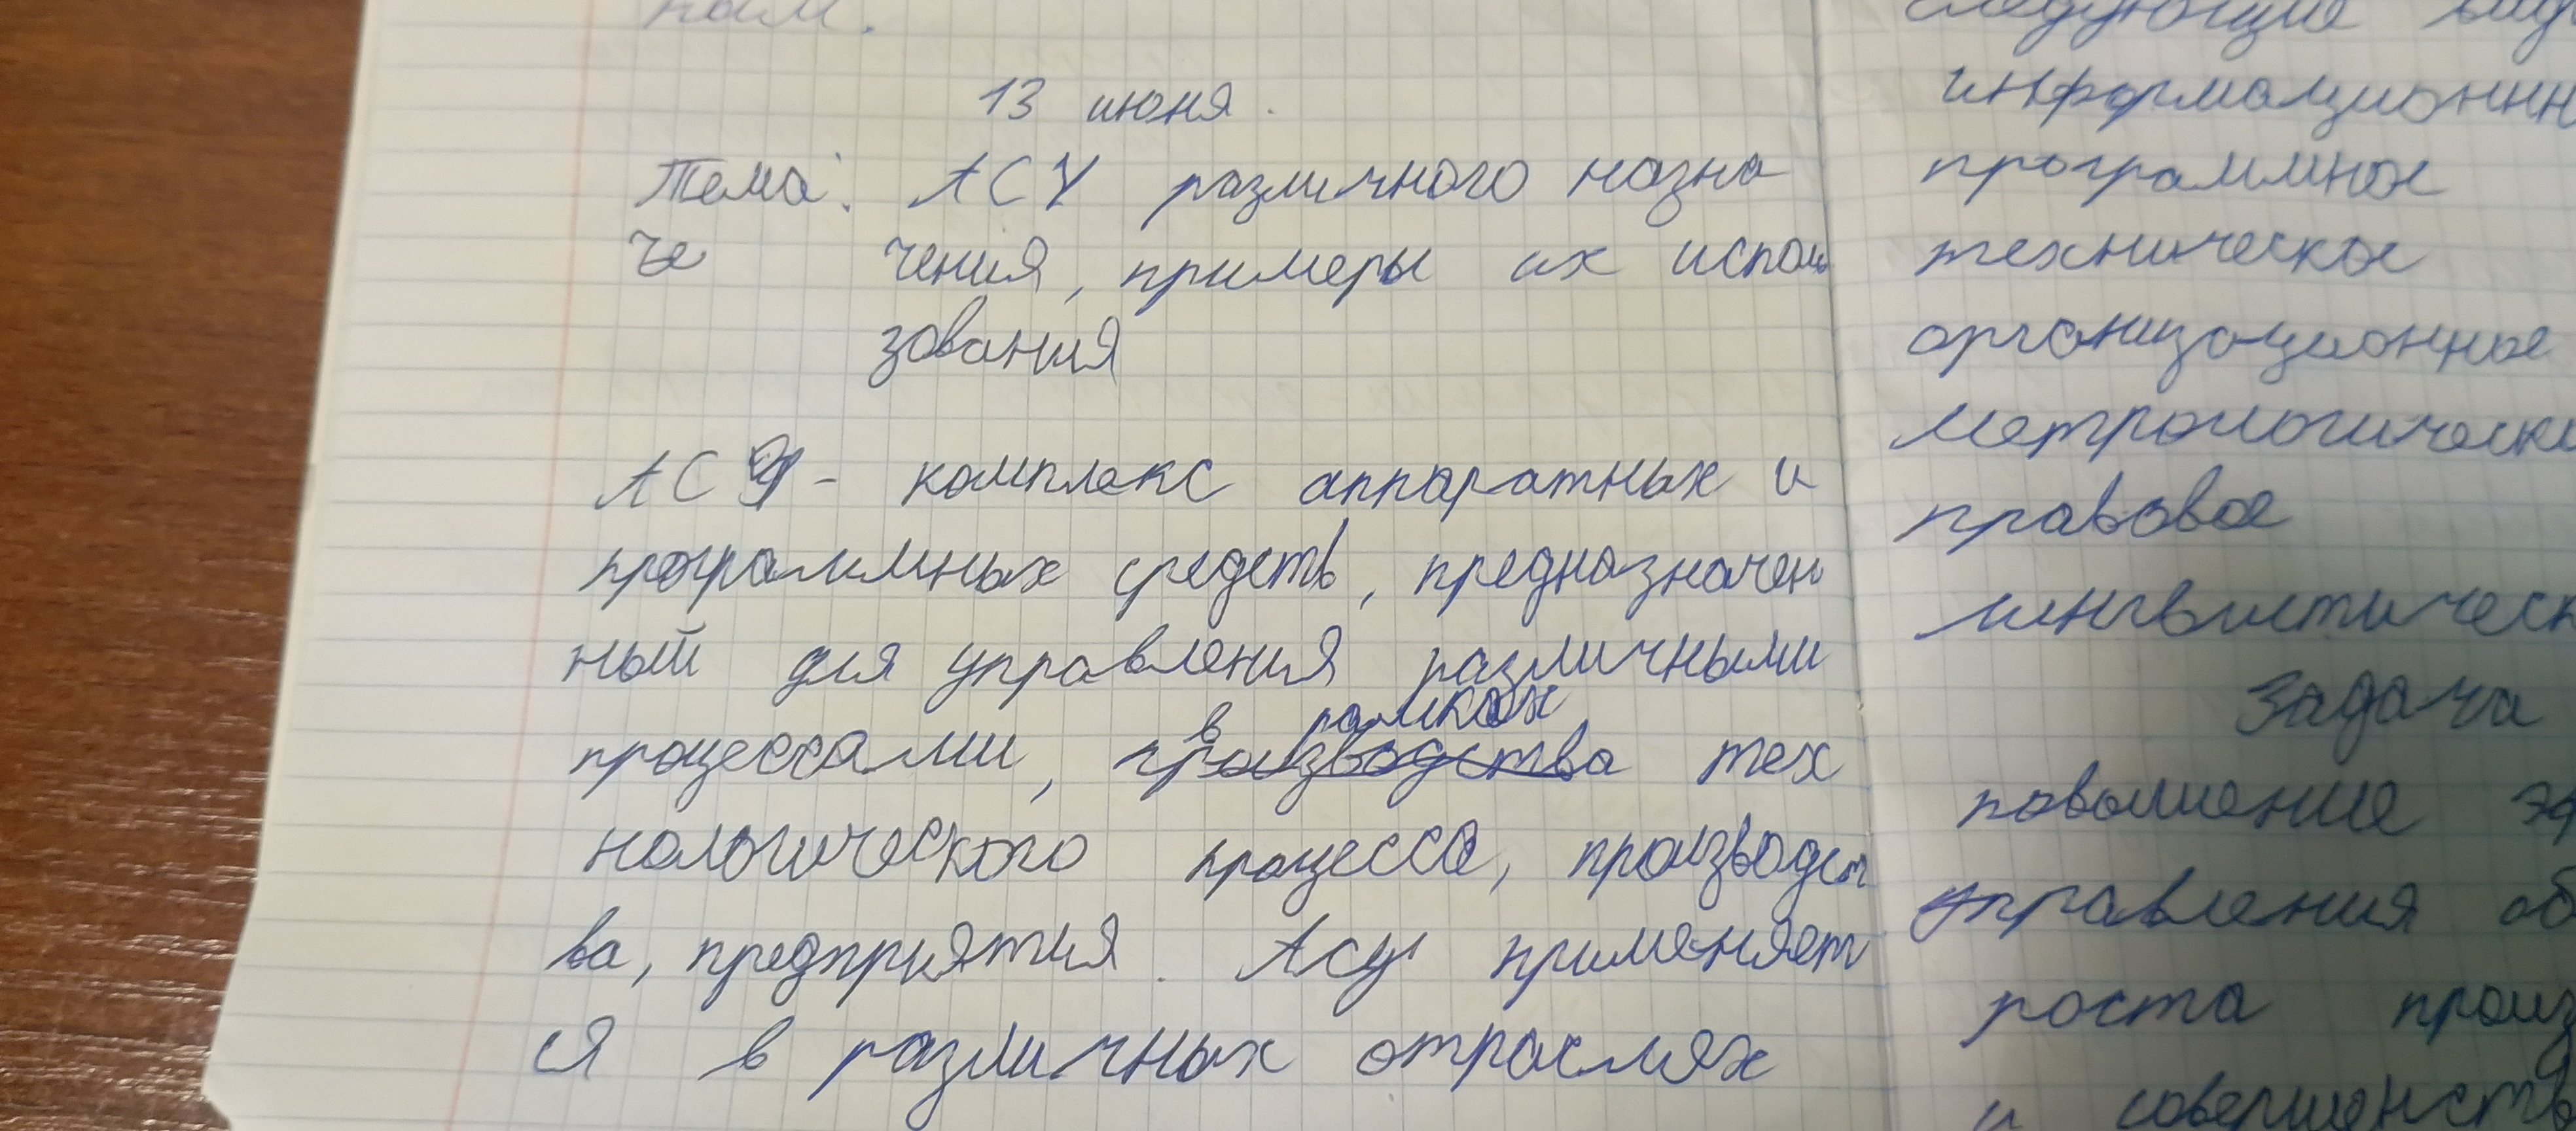 ным.
13 июня.
Тема: АСУ различного назна
че чения, примеры их исполь
зования
АСУ - комплекс аппаратных и
программных средств, предназначен
ный для управления различными
в рамках
процессами, производства тех
нологического процесса, производст
ва, предприятия. Асу применяет
ся в различных отраслях
следующие вид
информационн
программное
техническое
организационное
метрологически
правовое
лингвистическ
Задача
повышение эф
управления об
роста произ
и совершенств